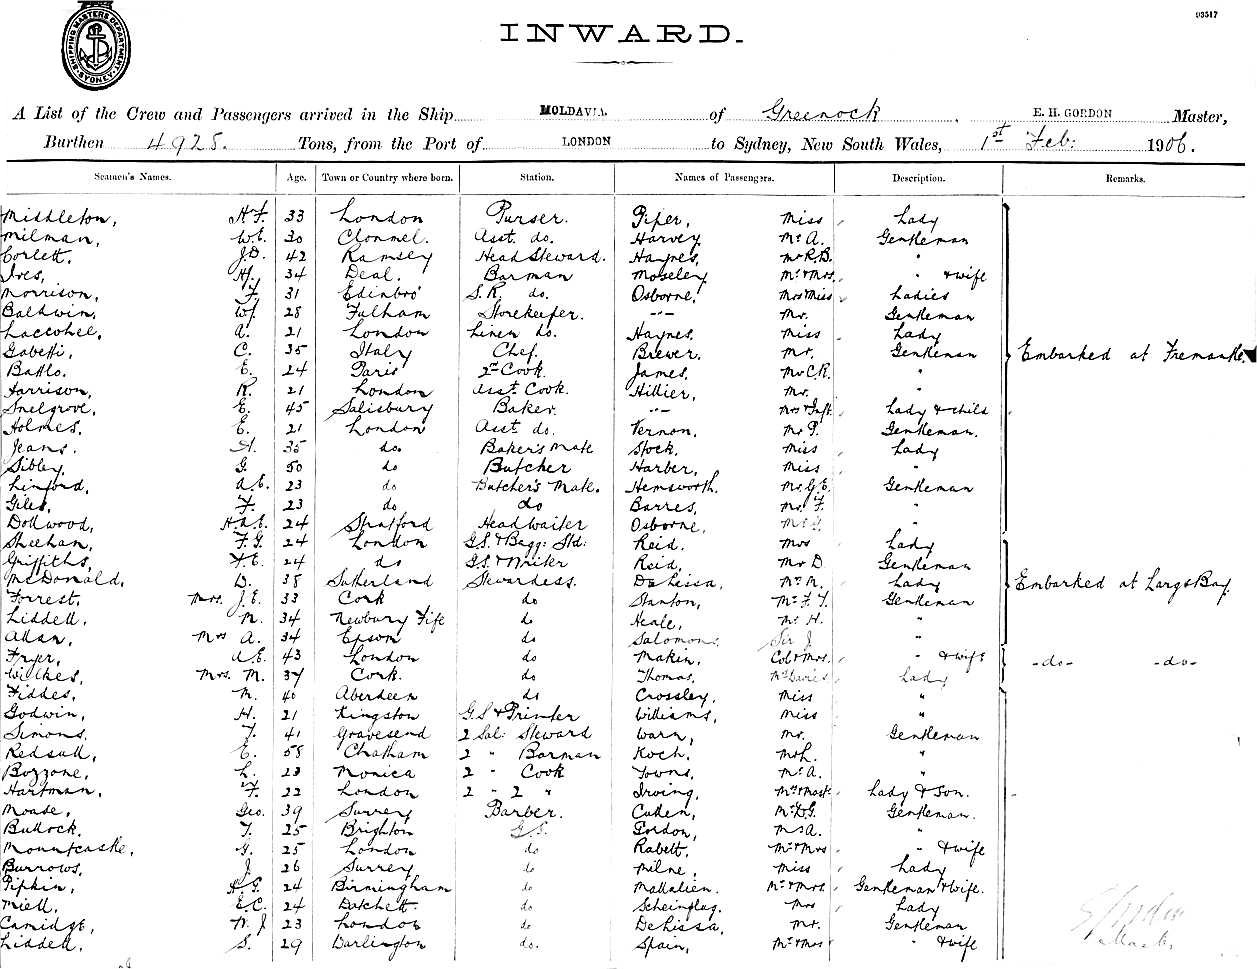 SHIPPING MASTERS DEPARTMENT SYDNEY
93517
INWARD.
A List of the Crew and Passengers arrived in the Ship MOLDAVIA. of Greenock, E. H. GORDON Master,
Burthen 4925. Tons, from the Port of LONDON to Sydney, New South Wales, 1st Feb: 1906.
Seamen's Names. Age. Town or Country where born. Station. Names of Passengers. Description. Remarks.
Middleton, H.F. 33 London Purser. Piper, Miss Lady
Milman, W.E. 30 Clonmel. Asst. do. Harvey Mr A. Gentleman
Corlett, J.D. 42 Ramsey Head Steward. Haynes, Mr R.B. "
Ives, H. 34 Deal. Barman Moseley Mr & Mrs. " & wife
Morrison, F 31 Edinbro' S.R. do. Osborne, Mrs Miss Ladies
Baldwin, W. 28 Fulham Storekeeper. -"- Mr. Gentleman
Laccohee, A. 21 London Linen do. Haynes. Miss Lady
Gabetti, C. 35 Italy Chef. Brewer. Mr. Gentleman Embarked at Fremantle.
Batlo. E. 24 Paris 2nd Cook. James, Mr C.R. "
Harrison, R. 21 London Asst. Cook. Hillier, Mr. "
Snelgrove, E. 45 Salisbury Baker. -"- Mrs & Inft. Lady & child
Holmes, E. 21 London Asst do. Vernon, Mr P. Gentleman.
Jeans. H. 35 do. Baker's Mate Stock. Miss Lady
Sibley, G. 50 do Butcher Harber, Miss "
Linford, A.E. 23 do Butcher's Mate. Hemsworth. Mr G.E. Gentleman
Giles, F. 23 do do Barres, Mr. F. "
Dollwood, H.A.E. 24 Stratford Head Waiter Osborne, "
Sheehan, F.G. 24 London G.S. & Bagg: Std: Reid. Mrs Lady
Griffiths, H.E. 24 do G.S. & Writer Reid, Mr D. Gentleman
McDonald, D. 38 Sutherland Stewardess. De Lissa, Lady Embarked at Largs Bay.
Forrest, Mrs. J.E. 33 Cork do Stanton, Mr F.T. Gentleman
Liddell, M. 34 Newbury Fife do Heale, Mr H. "
Allan, Mrs A. 34 Epsom do Salomons, Sir J "
Fryer, A.E. 43 London do Makin, Col & Mrs. " & wife -do- -do-
Wilkes, Mrs. M. 37 Cork. do Thomas, Lady
Fiddes, M. 40 Aberdeen do Crossley, Miss "
Godwin, H. 21 Kingston G.S & Printer Williams, Miss "
Simons, F. 41 Gravesend 2 Sal: Steward Warn, Mr. Gentleman
Redsull, E. 58 Chatham 2 " Barman Koch. Mr L. "
Bozzone, L. 23 Monica 2 - Cook Towns, Mr A. "
Hartman, F. 22 London 2 - 2 " Irving, Lady & Son.
Moase, Geo. 39 Surrey Barber. Cullen, Mr D.G. Gentleman.
Bullock. F. 25 Brighton G.S. Gordon, Mr A. "
Mountcastle, G. 25 London do Rabett, Mr & Mrs " & wife
Burrows, J. 26 Surrey do Milne, Miss Lady
Pipkin, H.G. 24 Birmingham do Mallalieu. Mr & Mrs. Gentleman & wife.
Miell, E.C. 24 Datchett. do Scheinflug. Mrs Lady
Camidge, W.J 23 London do De Lissa, Mr. Gentleman
Liddell, S. 29 Darlington do. Spain, Mr & Mrs " & wife